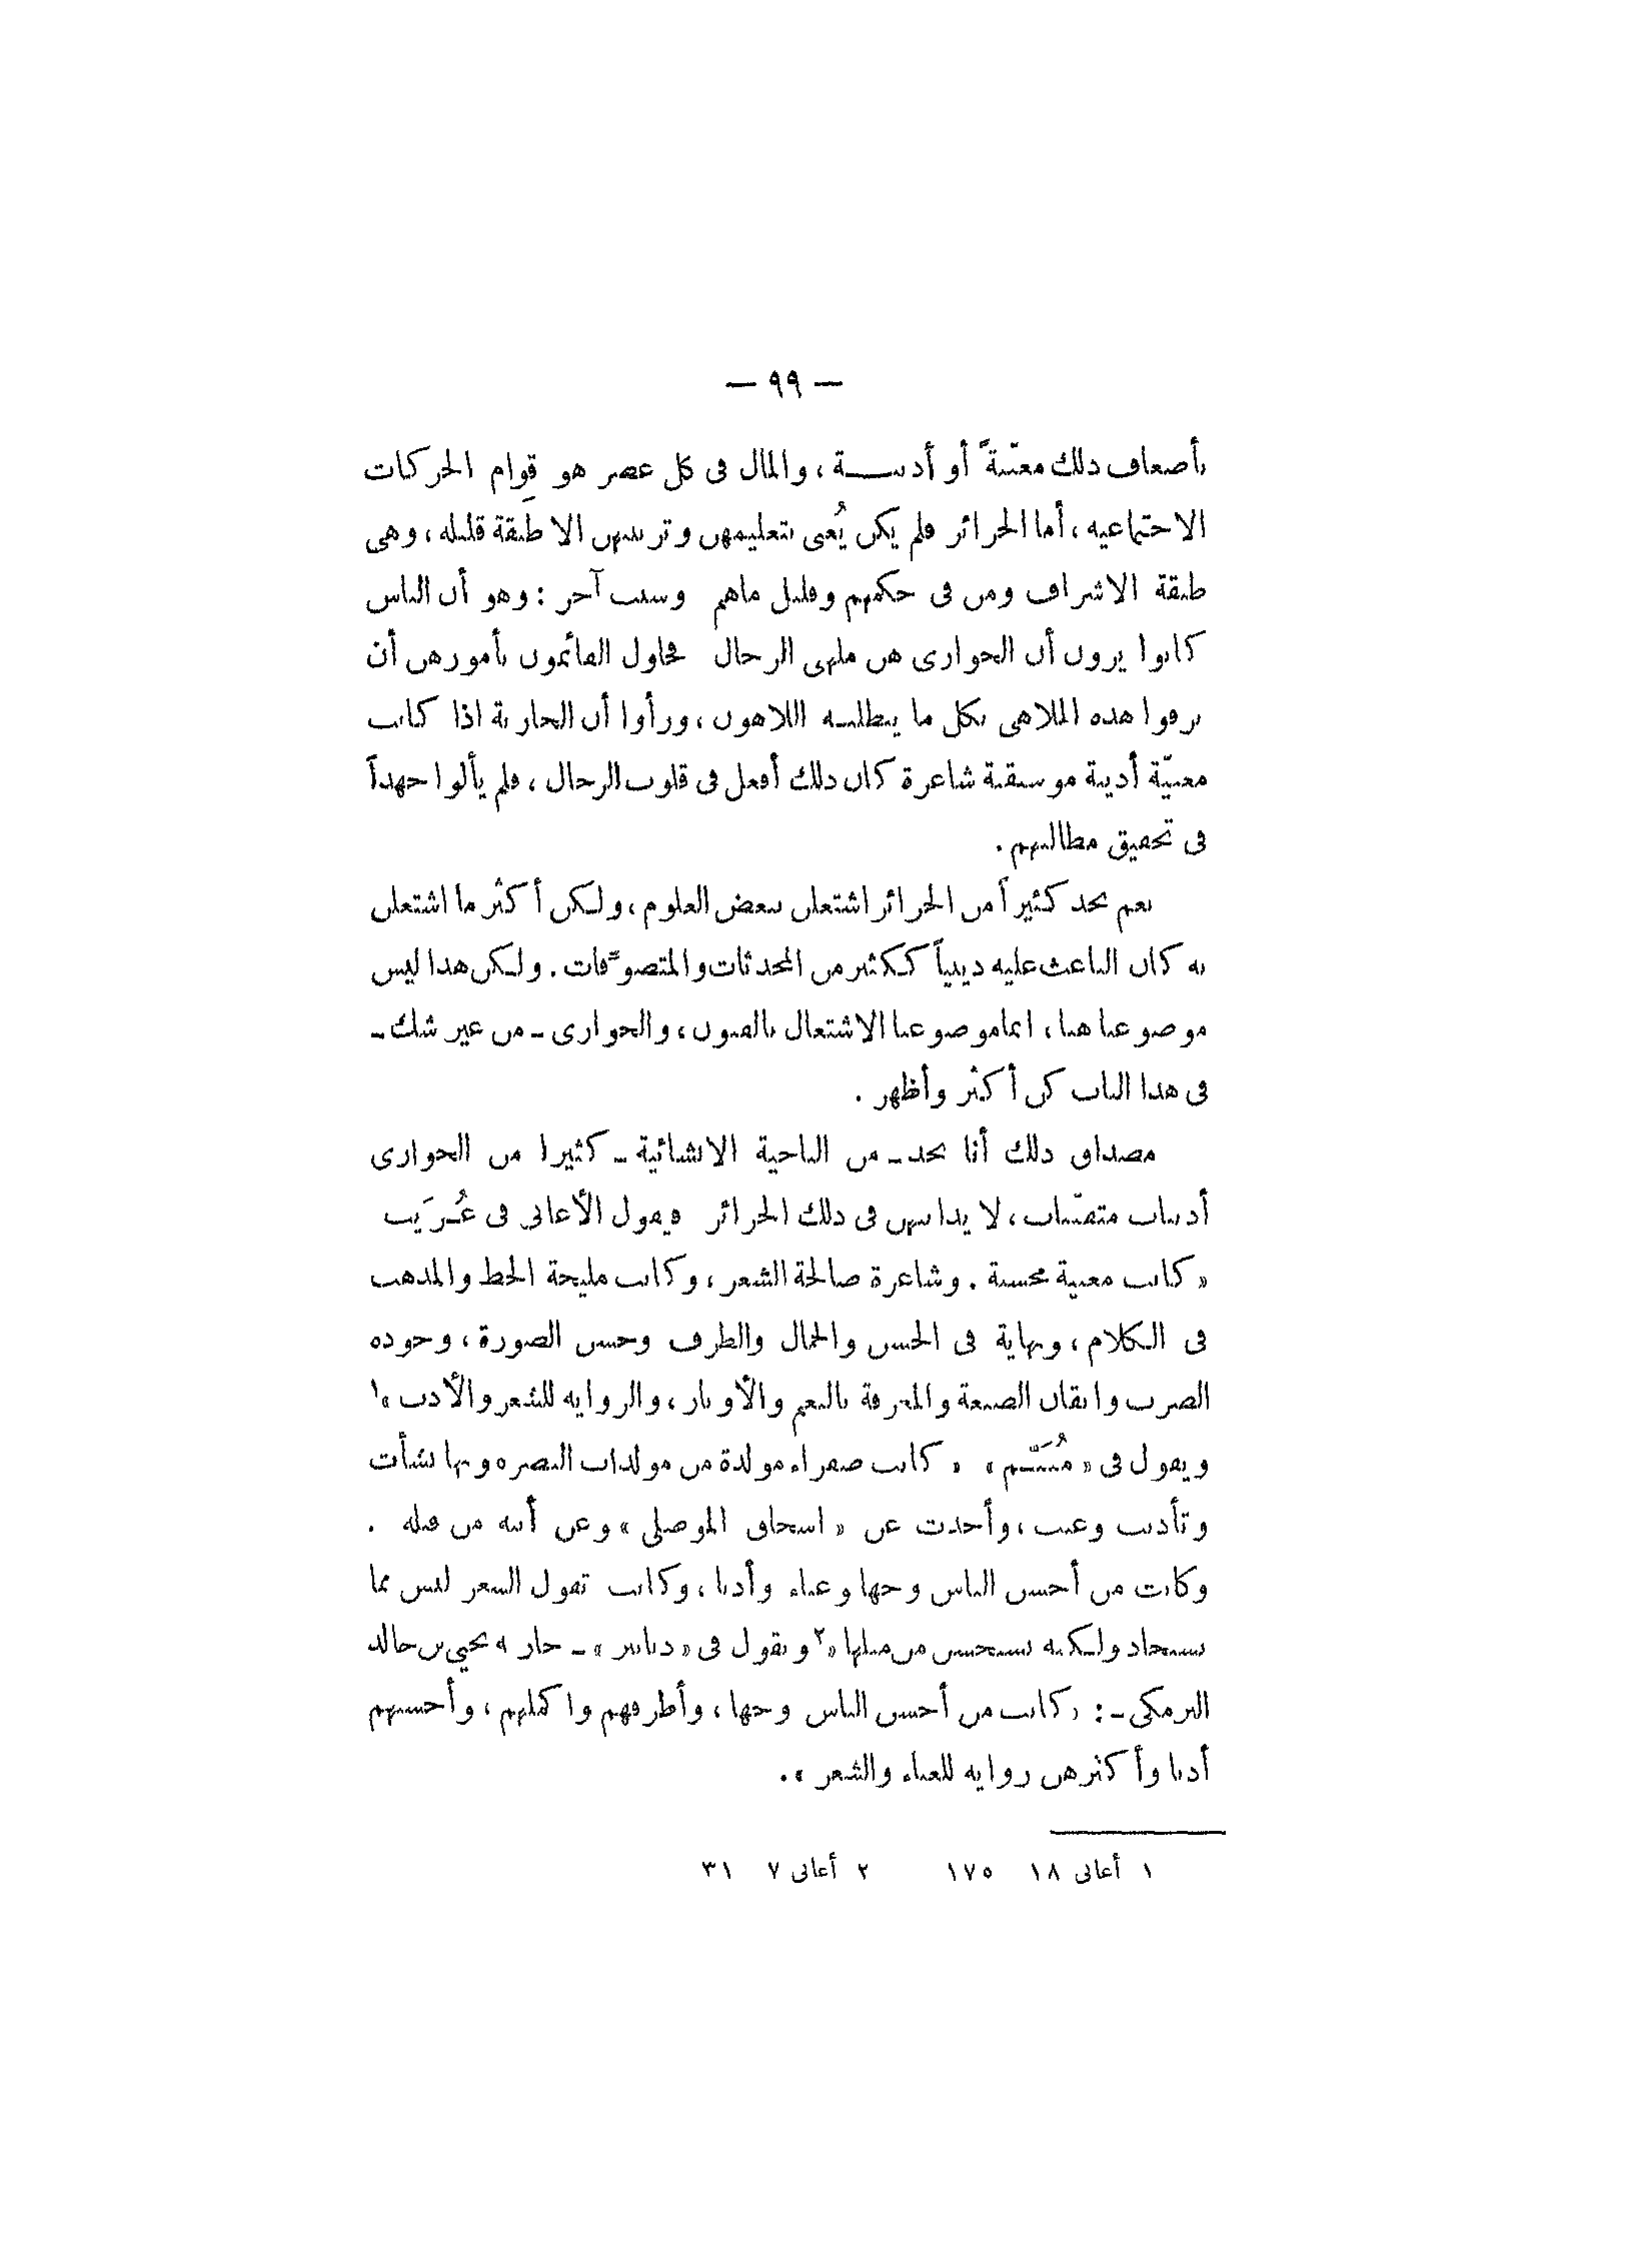 — ٩٩ —
بأضعاف ذلك مغنّيةً أو أديبـــة، والمال فى كل عصر هو قِوام الحركات
الاجتماعية، أما الحرائر فلم يكن يُعنى بتعليمهن وتربيتهن الا طبقة قليلة، وهى
طبقة الاشراف ومن فى حكمهم وقليل ماهم وسبب آخر : وهو أن الناس
كانوا يرون أن الجوارى هن ملهى الرجال فحاول القائمون بأمورهن أن
يرقوا هذه الملاهى بكل ما يتطلبـه اللاهون، ورأوا أن الجارية اذا كانت
مغنيّة أديبة موسيقية شاعرة كان ذلك أفعل فى قلوب الرجال، فلم يألوا جهداً
فى تحقيق مطالبهم .
نعم نجد كثيراً من الحرائر اشتغلن ببعض العلوم، ولـكن أكثر ما اشتغلن
به كان الباعث عليه دينياً ككثير من المحدثات والمتصوّفات . ولـكن هذا ليس
موضوعنا هنا، انما موضوعنا الاشتغال بالفنون، والجوارى ـ من غير شك ـ
فى هذا الباب كن أكثر وأظهر .
مصداق ذلك أنا نجد ـ من الناحية الانشائية ـ كثيرا من الجوارى
أديبات متفنّنات، لا يدانيهن فى ذلك الحرائر فيقول الأغانى فى عُـرَيب
« كانت مغنية محسنة . وشاعرة صالحة الشعر، وكانت مليحة الخط والمذهب
فى الـكلام، ونهاية فى الحسن والجمال والظرف وحسن الصورة، وجودة
الضرب واتقان الصنعة والمعرفة بالنغم والأوتار، والرواية للشعر والأدب »١
ويقول فى « مُتَيَّـم » « كانت صفراء مولدة من مولدات البصرة وبها نشأت
وتأدبت وغنت، وأخذت عن « اسحاق الموصلى » وعن أبيه من قبله .
وكانت من أحسن الناس وجها وغناء وأدبا، وكانت تقول الشعر ليس مما
يستجاد ولـكنه يستحسن من مثلها »٢ ويقول فى « دنانير » ـ جارية يحيي بن خالد
البرمكى ـ : « كانت من أحسن الناس وجها، وأظرفهم واكملهم، وأحسنهم
أدبا وأكثرهن رواية للغناء والشعر » .
١ أغانى ١٨ ١٧٥ ٢ أغانى ٧ ٣١